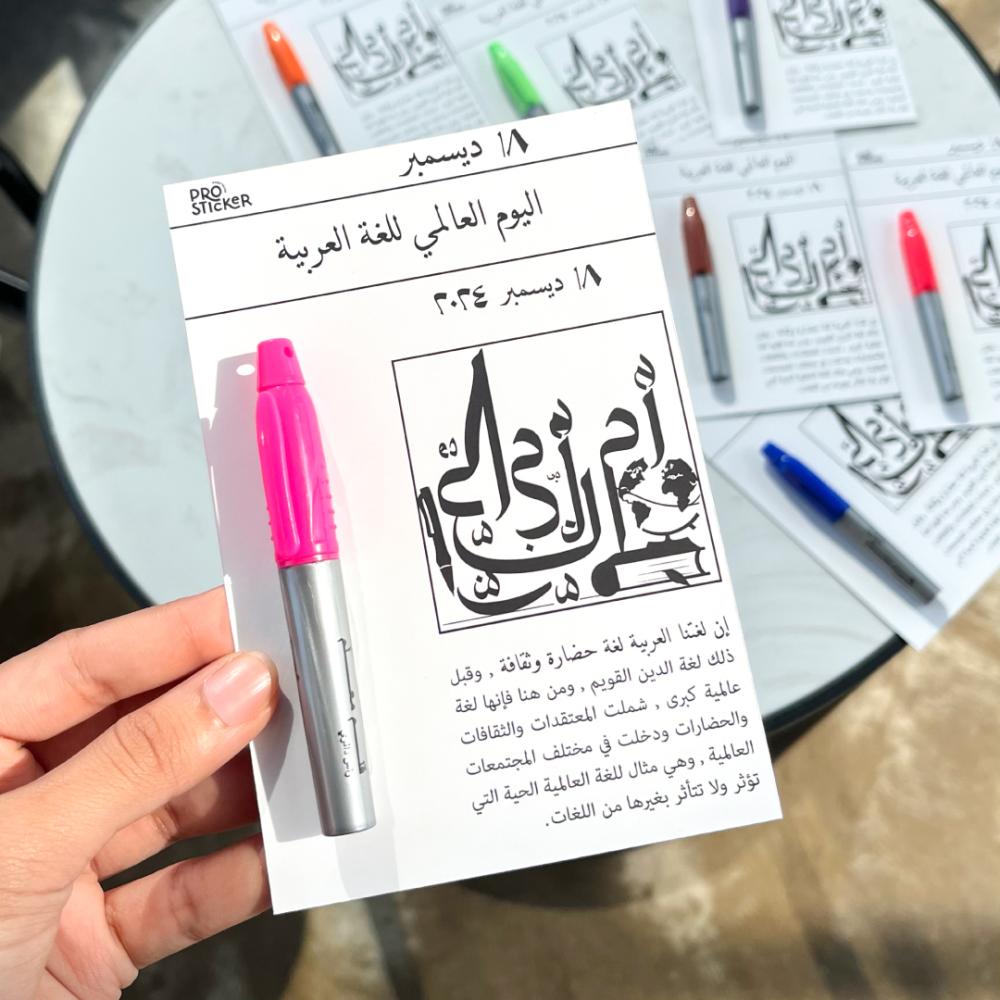 ١٨ ديسمبر
PRO
STICKER
اليوم العالمي للغة العربية
١٨ ديسمبر ٢٠٢٤
إن لغتنا العربية لغة حضارة وثقافة , وقبل
ذلك لغة الدين القويم , ومن هنا فإنها لغة
عالمية كبرى , شملت المعتقدات والثقافات
والحضارات ودخلت في مختلف المجتمعات
العالمية , وهي مثال للغة العالمية الحية التي
تؤثر ولا تتأثر بغيرها من اللغات.